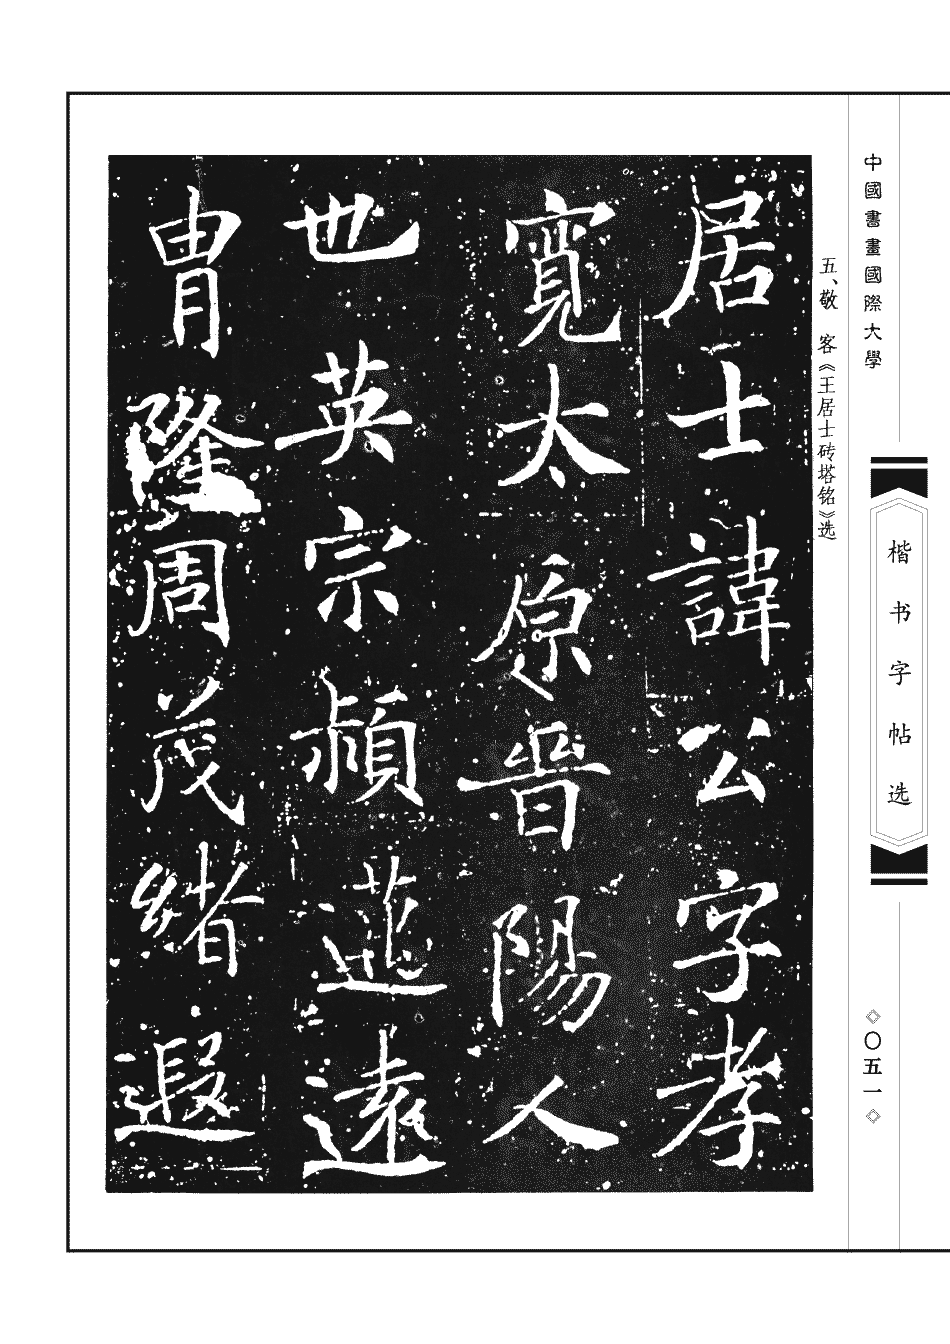 中國書畫國際大學
楷书字帖选
◇〇五一◇
五、敬 客《王居士砖塔铭》选
居士諱公字孝
寬太原晉陽人
也英宗穎邁遠
胄隆周茂緒遐